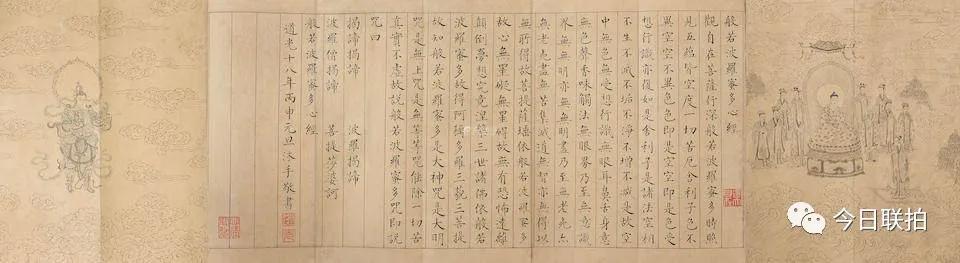 般若波羅蜜多心經
觀自在菩薩行深般若波羅蜜多時照
見五蘊皆空度一切苦厄舍利子色不
異空空不異色色即是空空即是色受
想行識亦復如是舍利子是諸法空相
不生不滅不垢不淨不增不減是故空
中無色無受想行識無眼耳鼻舌身意
無色聲香味觸法無眼界乃至無意識
界無無明亦無無明盡乃至無老死亦
無老死盡無苦集滅道無智亦無得以
無所得故菩提薩埵依般若波羅蜜多
故心無罣礙無罣礙故無有恐怖遠離
顛倒夢想究竟涅槃三世諸佛依般若
波羅蜜多故得阿耨多羅三藐三菩提
故知般若波羅蜜多是大神咒是大明
咒是無上咒是無等等咒能除一切苦
真實不虛故說般若波羅蜜多咒即說
咒曰
揭諦揭諦　波羅揭諦
波羅僧揭諦　菩提莎婆訶
般若波羅蜜多心經
道光十八年丙申元旦沐手敬書
今日联拍